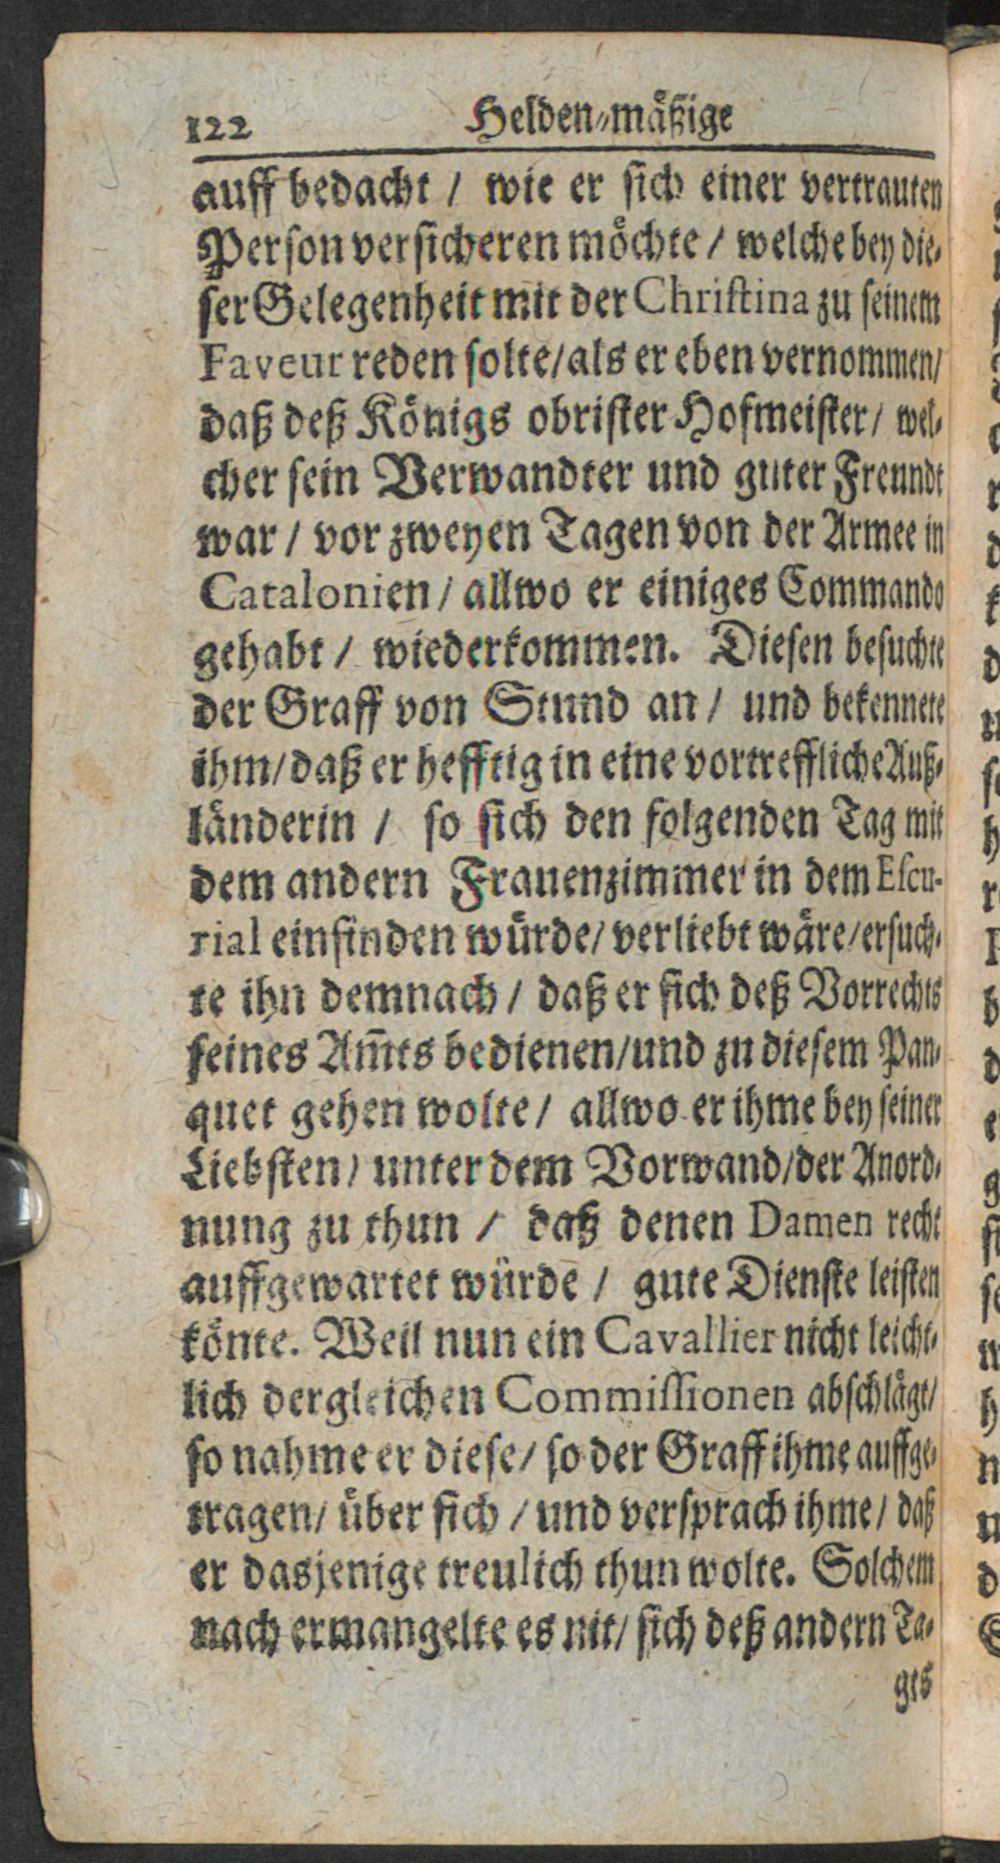 122 Helden-mäßige
auff bedacht / wie er sich einer vertrauten
Person versicheren möchte / welche bey die-
ser Gelegenheit mit der Christina zu seinem
Faveur reden solte/als er eben vernommen/
daß deß Königs obrister Hofmeister / wel-
cher sein Verwandter und guter Freundt
war / vor zweyen Tagen von der Armee in
Catalonien / allwo er einiges Commando
gehabt / wiederkommen. Diesen besuchte
der Graff von Stund an / und bekennete
ihm/daß er hefftig in eine vortreffliche Auß-
länderin / so sich den folgenden Tag mit
dem andern Frauenzimmer in dem Escu-
rial einfinden würde/ verliebt wäre/ersuch-
te ihn demnach / daß er sich deß Vorrechts
seines Am̄ts bedienen/und zu diesem Pan-
quet gehen wolte / allwo er ihme bey seiner
Liebsten/ unter dem Vorwand/der Anord-
nung zu thun / daß denen Damen recht
auffgewartet würde / gute Dienste leisten
könte. Weil nun ein Cavallier nicht leicht-
lich dergleichen Commissionen abschlägt/
so nahme er diese/ so der Graff ihme auffge-
tragen/ über sich / und versprach ihme/ daß
er dasjenige treulich thun wolte. Solchem
nach ermangelte es nit/ sich deß andern Ta-
ges